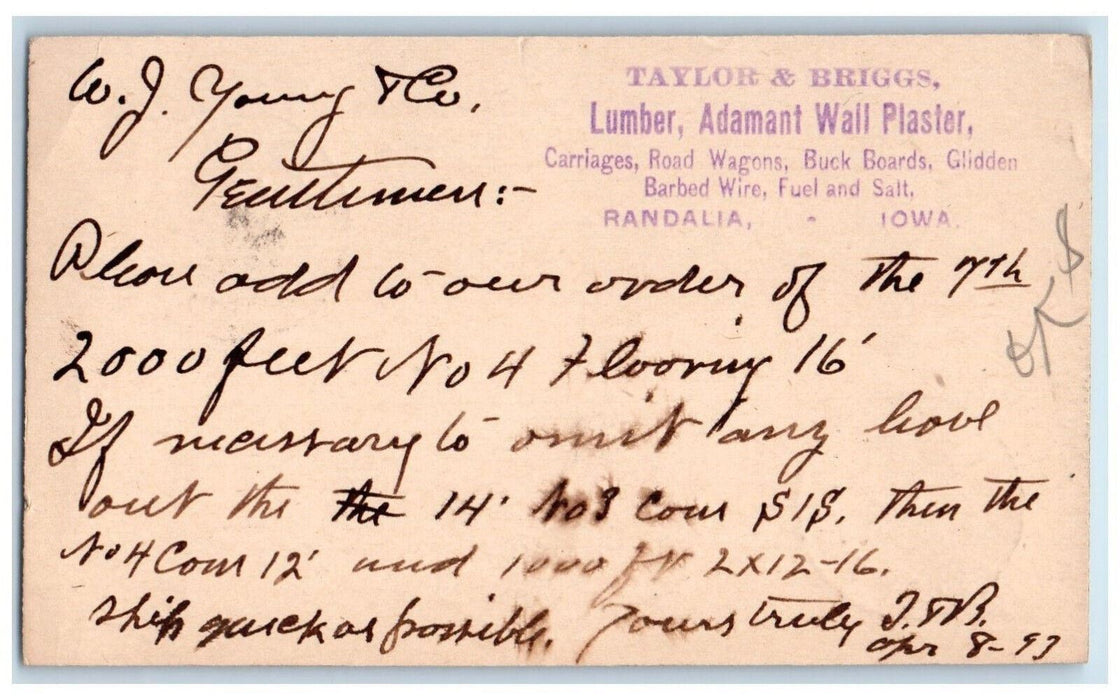 TAYLOR & BRIGGS,
Lumber, Adamant Wall Plaster,
Carriages, Road Wagons, Buck Boards, Glidden
Barbed Wire, Fuel and Salt,
RANDALIA, - IOWA.
W. J. Young & Co.
Gentlemen:-
Please add to our order of the 7th
2000 feet No 4 Flooring 16'
If necessary to omit any leave
out the the 14' No 3 Com S1S. then the
No 4 Com 12' and 1000 ft 2X12-16.
Ship quick as possible. Yours truly T.&B.
Apr 8-93
OK